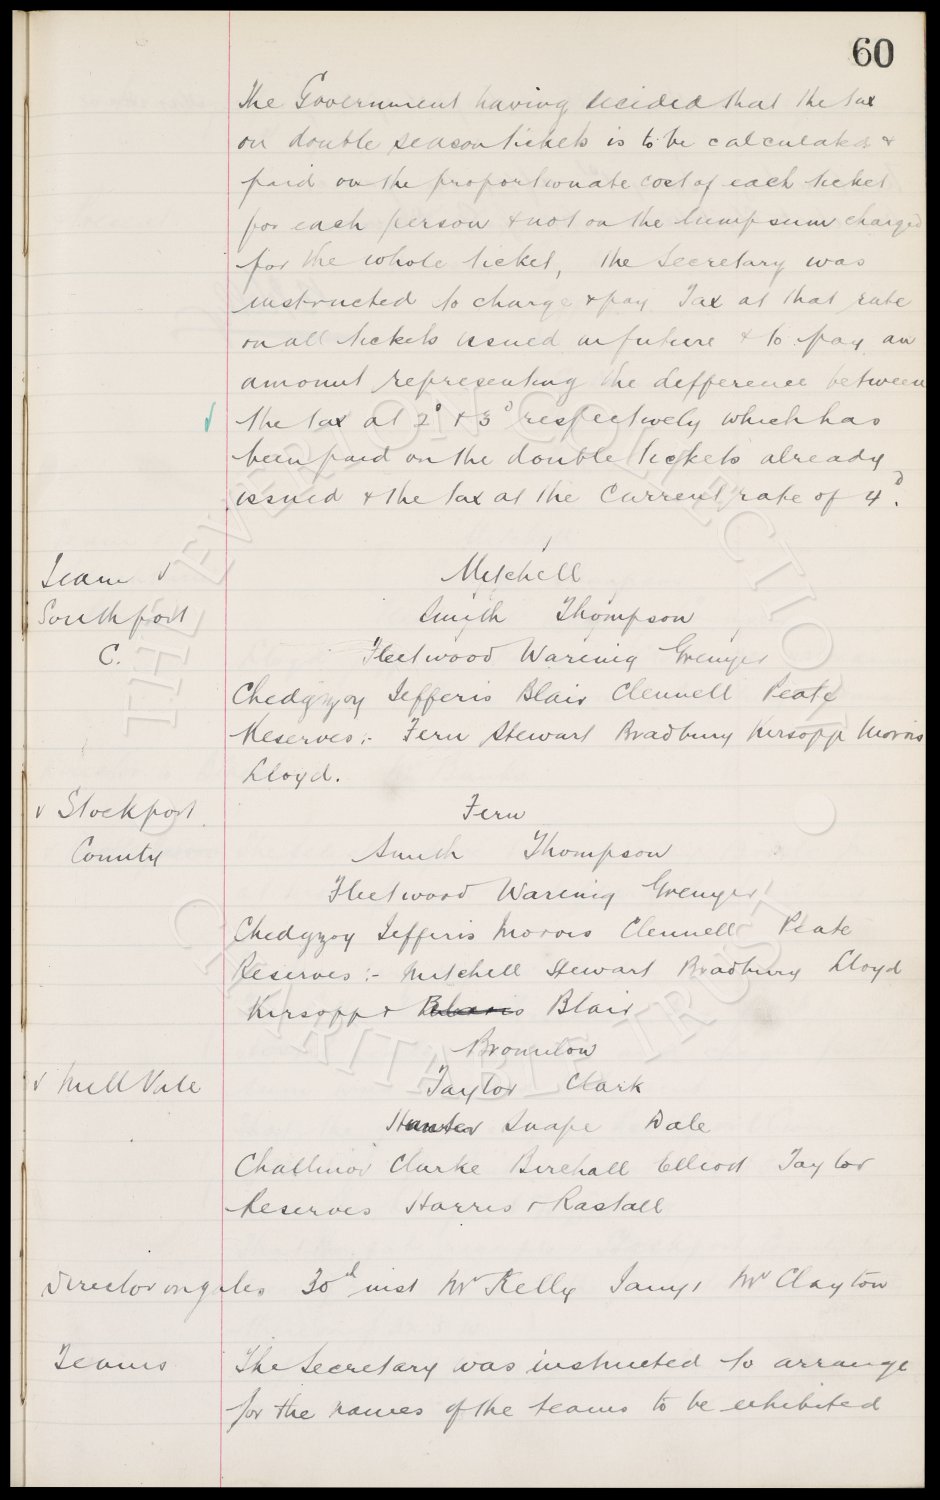 60
The Government having decided that the tax
on double season tickets is to be calculated &
paid on the proportionate cost of each ticket
for each person & not on the lump sum charged
for the whole ticket, the Secretary was
instructed to charge & pay Tax at that rate
on all tickets issued in future & to pay an
amount representing the difference between
the tax at 2d & 3d respectively which has
been paid on the double tickets already
issued & the tax at the Current rate of 4d.
Team Mitchell
Southport Smith Thompson
C. Fleetwood Wareing Grenyer
Chedgzoy Jefferis Blair Clennell Peate
Reserves:- Fern Stewart Bradbury Kirsopp Morris
Lloyd.
Stockport Fern
County Smith Thompson
Fleetwood Wareing Grenyer
Chedgzoy Jefferis Morris Clennell Peate
Reserves:- Mitchell Stewart Bradbury Lloyd
Kirsopp & Blair
Brownlow
Mell Vale Taylor Clark
Hunter Snape Dale
Challinor Clarke Birchall Elliott Taylor
Reserves Harris & Rastall
Director on gates 30d inst Mr Kelly Mr Clayton
Teams The Secretary was instructed to arrange
for the names of the teams to be exhibited
THE EVERTON COLLECTION
CHARITABLE TRUST